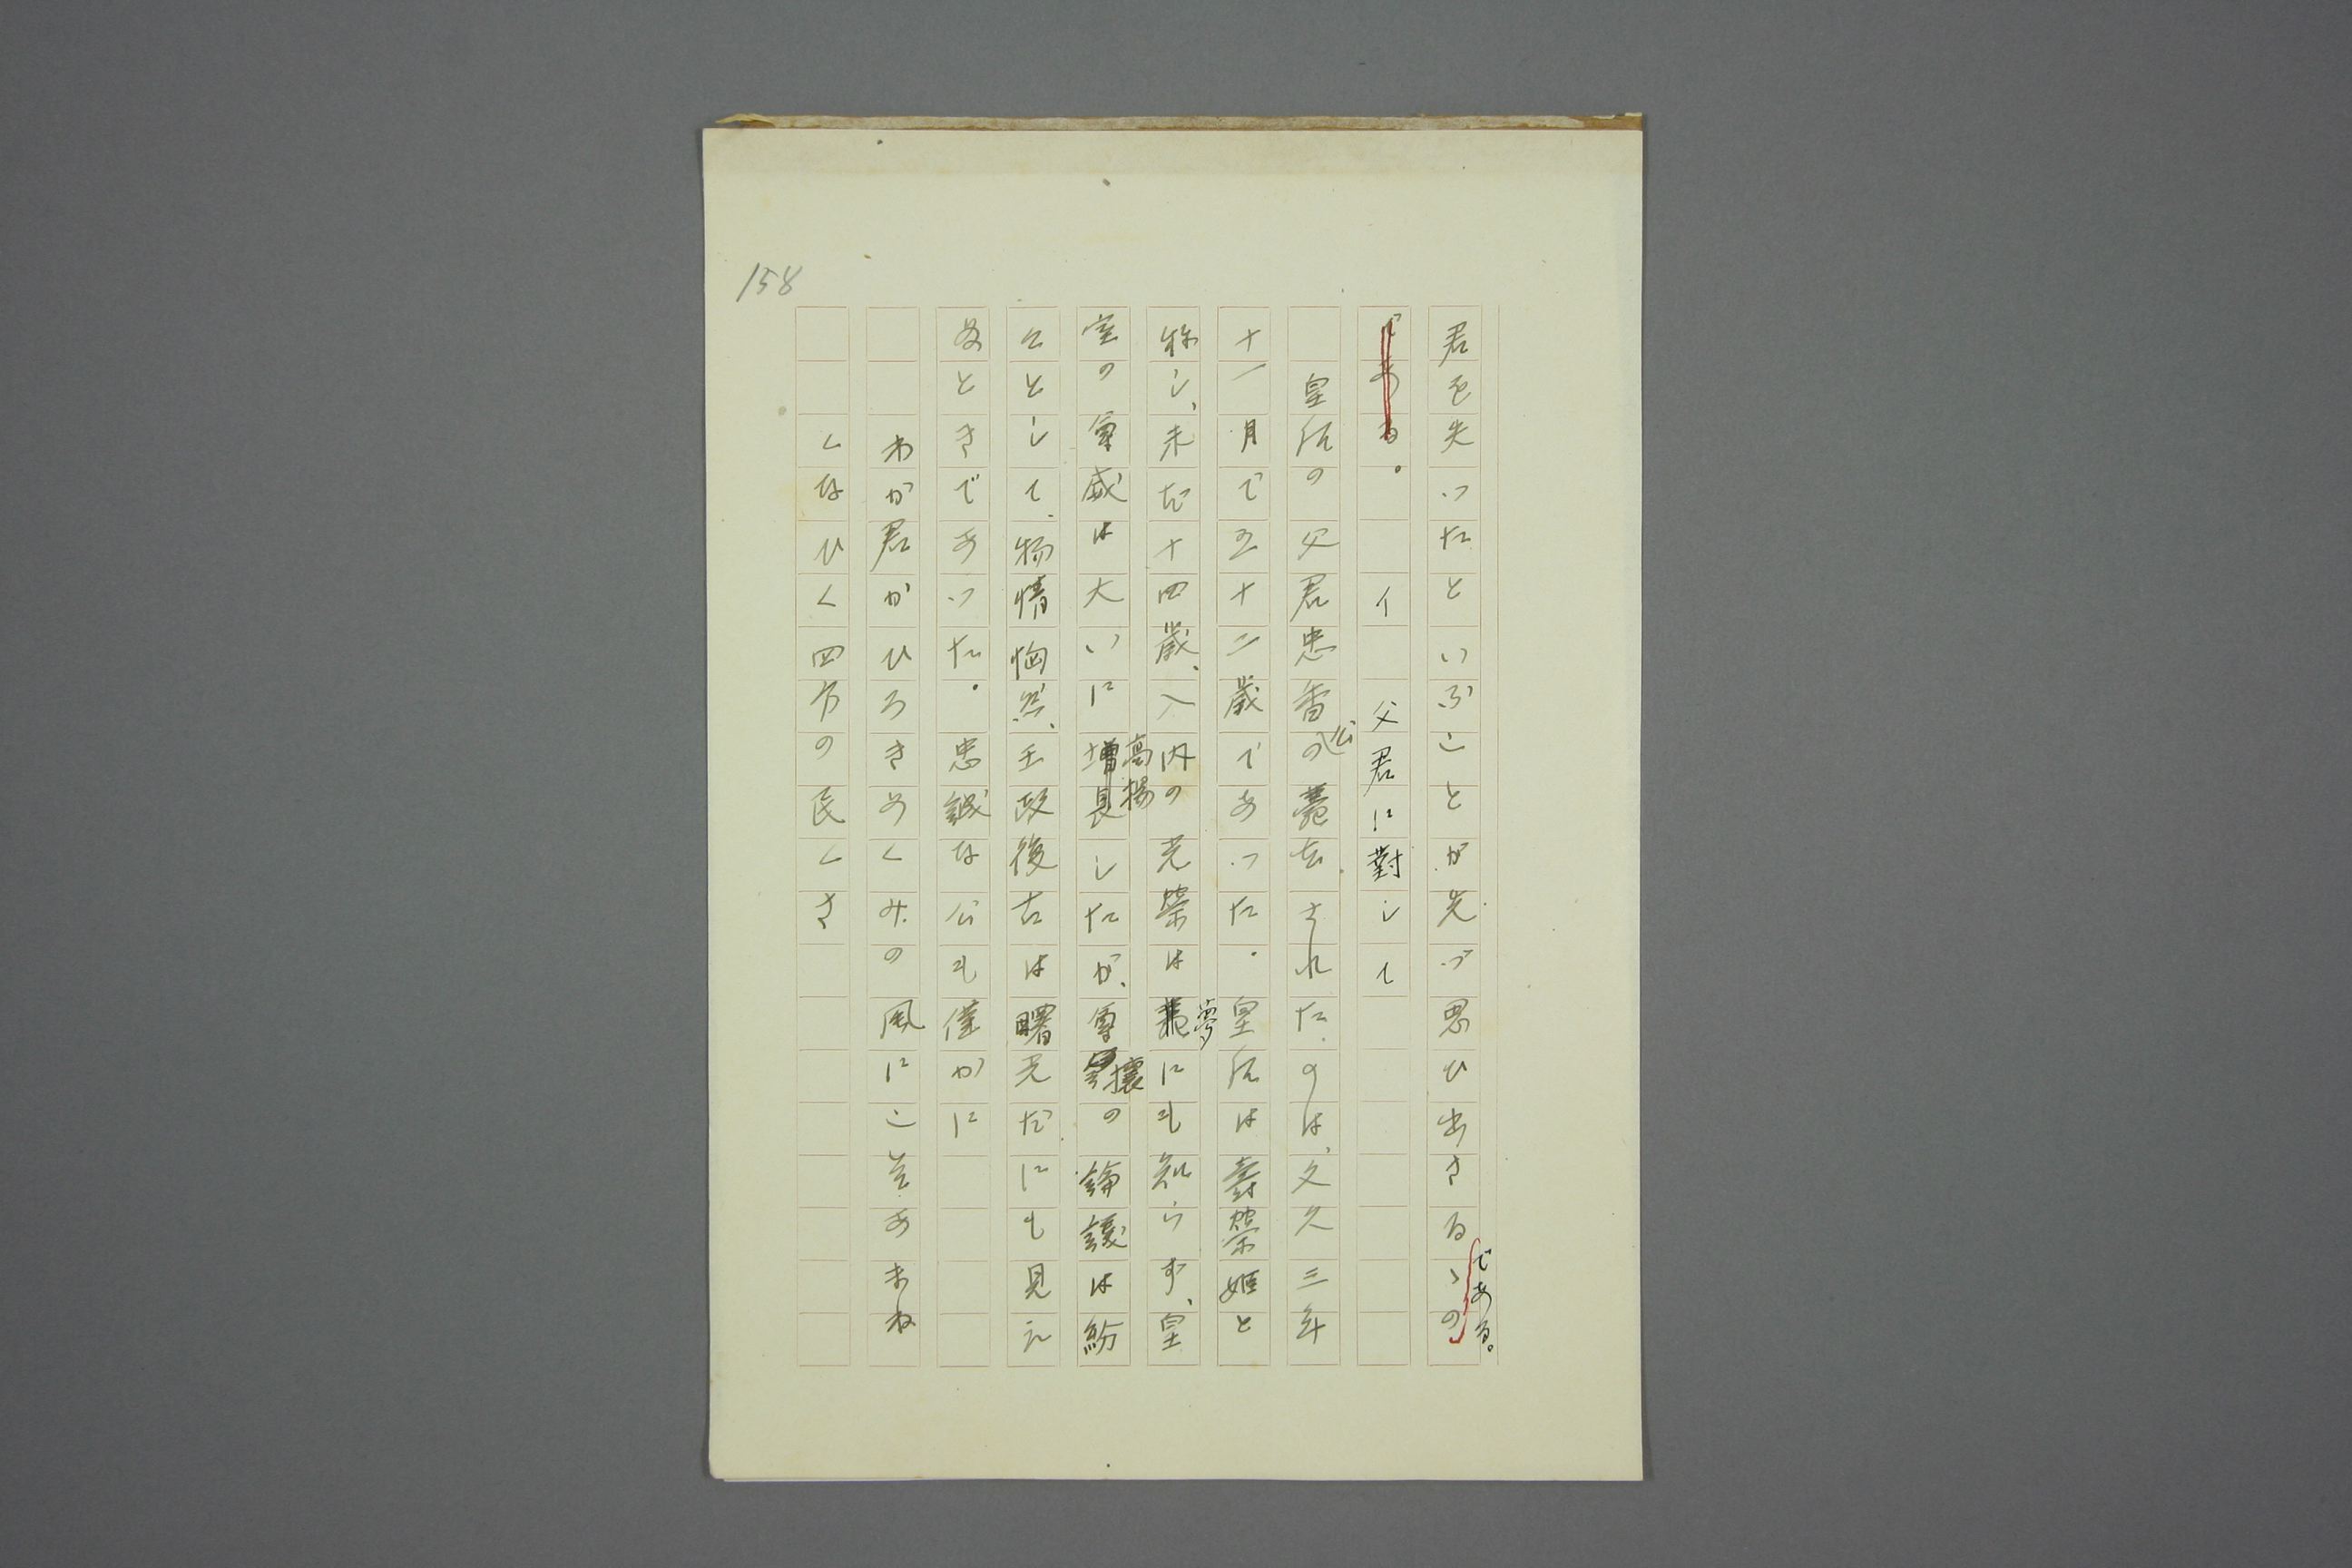 158
君を失つたといふことが先づ思ひ出さるゝのである。
である。 イ 父君に對して
皇后の父君忠香公の薨去されたのは、文久三年
十一月で五十二歳であつた。皇后は壽榮姫と
称し、未だ十四歳、入内の光榮は夢にも知らず、皇
室の尊威は大いに増長高揚したが、尊攘の論議は紛
々として、物情恟然、王政復古は曙光だにも見え
ぬときであつた。忠誠な公も僅かに
わか君かひろきめくみの風にこそあまね
くなひく四方の民くさ